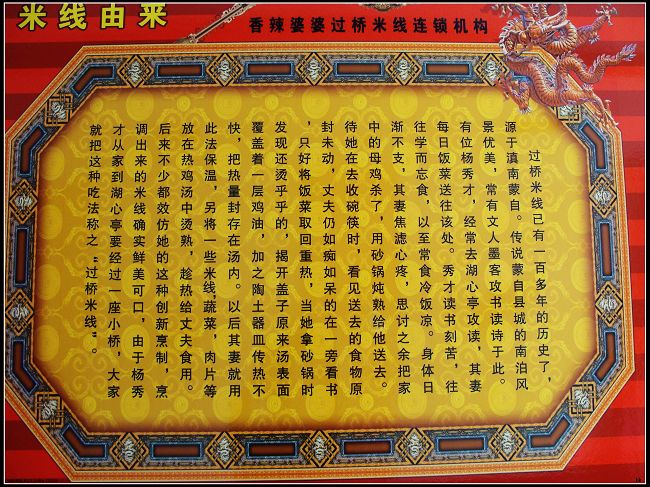 米线由来
香辣婆婆过桥米线连锁机构
过桥米线已有一百多年的历史了，
源于滇南蒙自。传说蒙自县城的南泊风
景优美，常有文人墨客攻书读诗于此。
有位杨秀才，经常去湖心亭攻读，其妻
每日饭菜送往该处。秀才读书刻苦，往
往学而忘食，以至常食冷饭凉。身体日
渐不支，其妻焦滤心疼，思讨之余把家
中的母鸡杀了，用砂锅炖熟给他送去。
待她在去收碗筷时，看见送去的食物原
封未动，丈夫仍如痴如呆的在一旁看书
，只好将饭菜取回重热，当她拿砂锅时
发现还烫乎乎的，揭开盖子原来汤表面
覆盖着一层鸡油，加之陶土器皿传热不
快，把热量封存在汤内。以后其妻就用
此法保温，另将一些米线,蔬菜，肉片等
放在热鸡汤中烫熟，趁热给丈夫食用。
后来不少都效仿她的这种创新烹制，烹
调出来的米线确实鲜美可口，由于杨秀
才从家到湖心亭要经过一座小桥，大家
就把这种吃法称之“过桥米线”。